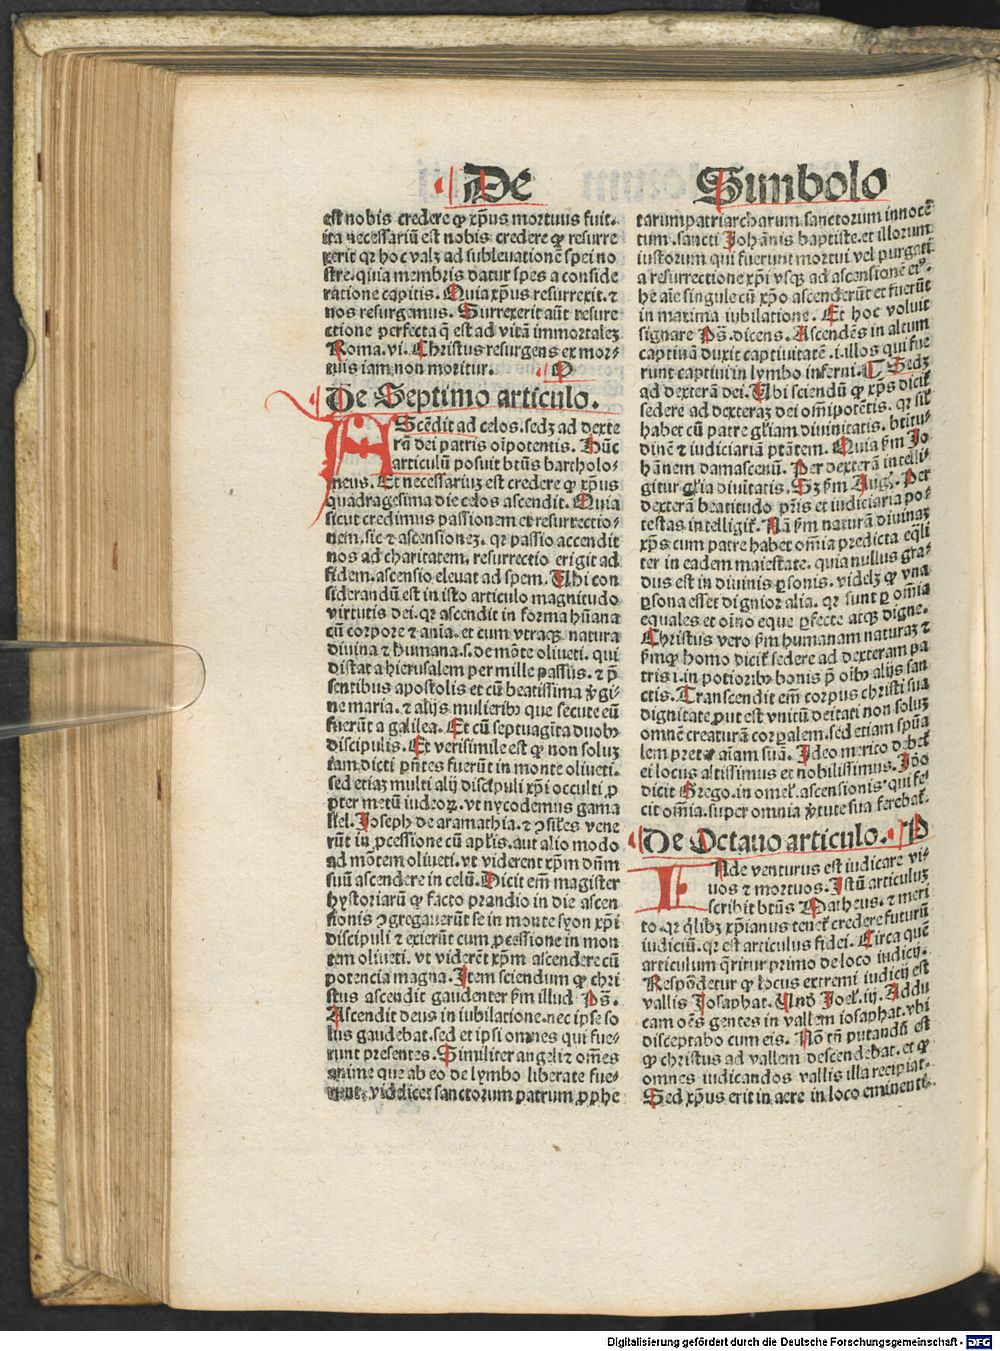 De Simbolo
est nobis credere ꝙ xp̄us mortuus fuit.
ita necessariū est nobis credere ꝙ resurre
xerit qꝛ hoc valꝫ ad subleuationē spei no
stre. quia membris datur spes a conside
ratione capitis. Quia xp̄us resurrexit. ⁊
nos resurgemus. Surrexerit aūt resurre
ctione perfecta q̄ est ad vitā immortaleꝫ
Roma. vi. Christus resurgens ex mor⸗
tuis iam non moritur.
De Septimo articulo.
AScēdit ad celos. sedꝫ ad dexte
rā dei patris oīpotentis. Hūc
articulū posuit btūs bartholo⸗
meus. Et necessariuꝫ est credere ꝙ xp̄us
quadragesima die celos ascendit. Quia
sicut credimus passionem et resurrectio⸗
nem. sic ⁊ ascensioneꝫ. qꝛ passio accendit
nos ad charitatem. resurrectio erigit ad
fidem. ascensio eleuat ad spem. Ubi con
siderandū est in isto articulo magnitudo
virtutis dei. qꝛ ascendit in forma hūana
cū corpore ⁊ aīa. et cum vtraqꝫ natura
diuina ⁊ humana. s. de mōte oliueti. qui
distat a hierusalem per mille passus. ⁊ p̄
sentibus apostolis et cū beatissima v̓gi⸗
ne maria. ⁊ alijs mulieribꝰ que secute eū
fuerūt a galilea. Et cū septuagīta duobꝰ
discipulis. Et verisimile est ꝙ non soluꝫ
iam dicti p̄ntes fuerūt in monte oliueti.
sed etiaꝫ multi alij discipuli xp̄i occulti ꝓ
pter metū iudeoꝝ. vt nycodemus gama
liel. Joseph de aramathia. ⁊ ꝯsiles vene
rūt in ꝓcessione cū aplīs. aut alio modo
ad mōtem oliueti. vt viderent xp̄m dn̄m
suū ascendere in celū. Dicit em̄ magister
hystoriarū ꝙ facto prandio in die ascen
sionis ꝯgregauerūt se in monte syon xp̄i
discipuli ⁊ exierūt cum ꝓcessione in mon
tem oliueti. vt viderēt xp̄m ascendere cū
potencia magna. Item sciendum ꝙ chri
stus ascendit gaudenter s̄m illud Ps̄.
Ascendit deus in iubilatione. nec ipse so
lus gaudebat. sed et ipsi omnes qui fue⸗
runt presentes. Similiter angeli ⁊ om̄es
anime que ab eo de lymbo liberate fue⸗
runt. videlicet sanctorum patrum ꝓphe
tarum patriarcharum sanctorum innocē
tum. sancti Johānis baptiste. et illorum
iustorum qui fuerunt mortui vel purgati
a resurrectione xp̄i vsqꝫ ad ascensionē eiꝰ.
he aīe singule cū xp̄o ascenderūt et fuerūt
in maxima iubilatione. Et hoc voluit
signare Ps̄. dicens. Ascendēs in altum
captiuā duxit captiuitatē. i. illos qui fue
runt captiui in lymbo inferni. Sedꝫ
ad dexterā dei. Ubi sciendū ꝙ xp̄s dicit̄
sedere ad dexteraꝫ dei om̄ipotētis. qꝛ sil̓
habet cū patre gl̓iam diuinitatis. btitu⸗
dinē ⁊ iudiciariā ptātem. Quia s̄m Jo
hānem damascenū. Per dexterā intelli⸗
gitur gl̓ia diuītatis. Sꝫ s̄m Aug. Per
dexterā beatitudo pr̄is et iudiciaria po⸗
testas intelligit̄. Nā s̄m naturā diuinaꝫ
xp̄s cum patre habet om̄ia predicta eq̄li
ter in eadem maiestate. quia nullus gra⸗
dus est in diuinis ꝑsonis. videlꝫ ꝙ vna
ꝑsona esset dignior alia. qꝛ sunt ꝑ om̄ia
equales et oīno eque ꝑfecte atqꝫ digne.
Christus vero s̄m humanam naturaꝫ ⁊
s̄mqꝙ homo dicit̄ sedere ad dexteram pa
tris. i. in potioribꝰ bonis p̄ oībꝰ alijs san
ctis. Transcendit em̄ corpus christi sua
dignitate ꝓut est vnitū deitati non soluꝫ
omnē creaturā corꝑalem. sed etiam spūa
lem preter aīam suā. Ideo merito debet̄
ei locus altissimus et nobilissimus. Ideo
dicit Grego. in omel̓. ascensionis. qui fe
cit om̄ia. super omnia v̓tute sua ferebat̄.
De Octauo articulo.
INde venturus est iudicare vi⸗
uos ⁊ mortuos. Istū articuluꝫ
scribit btūs Matheus. ⁊ meri
to. qꝛ q̄libꝫ xp̄ianus tenet̄ credere futurū
iudiciū. qꝛ est articulus fidei. Circa quē
articulum q̄ritur primo de loco iudicij.
Respōdetur ꝙ locus extremi iudicij est
vallis Josaphat. Unō Joel̓. iij. Addu
cam oēs gentes in vallem iosaphat. vbi
disceptabo cum eis. Nō tn̄ putandū est
ꝙ christus ad vallem descendebat. et ꝙ
omnes iudicandos vallis illa recipiat.
Sed xp̄us erit in aere in loco eminenti.
Digitalisierung gefördert durch die Deutsche Forschungsgemeinschaft - DFG